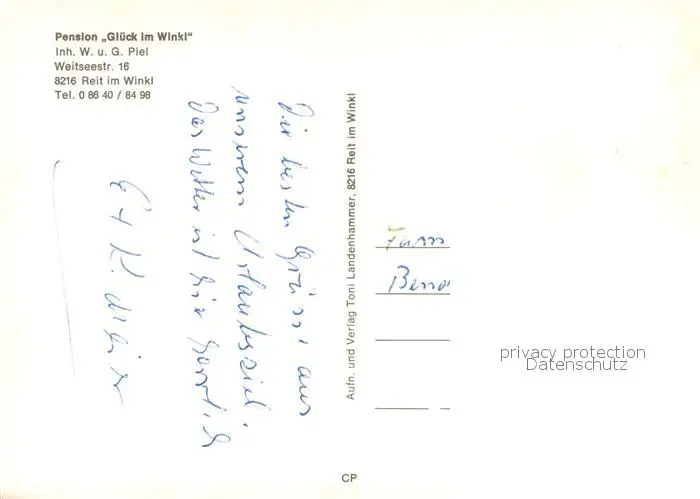 Pension „Glück im Winkl“
Inh. W. u. G. Piel
Weitseestr. 16
8216 Reit im Winkl
Tel. 0 86 40 / 84 98
Die besten Grüsse aus
unserem Urlaubsziel.
Das Wetter ist hier herrlich
E + K. Meier
Aufn. und Verlag Toni Landenhammer, 8216 Reit im Winkl
Fam
privacy protection
Datenschutz
CP